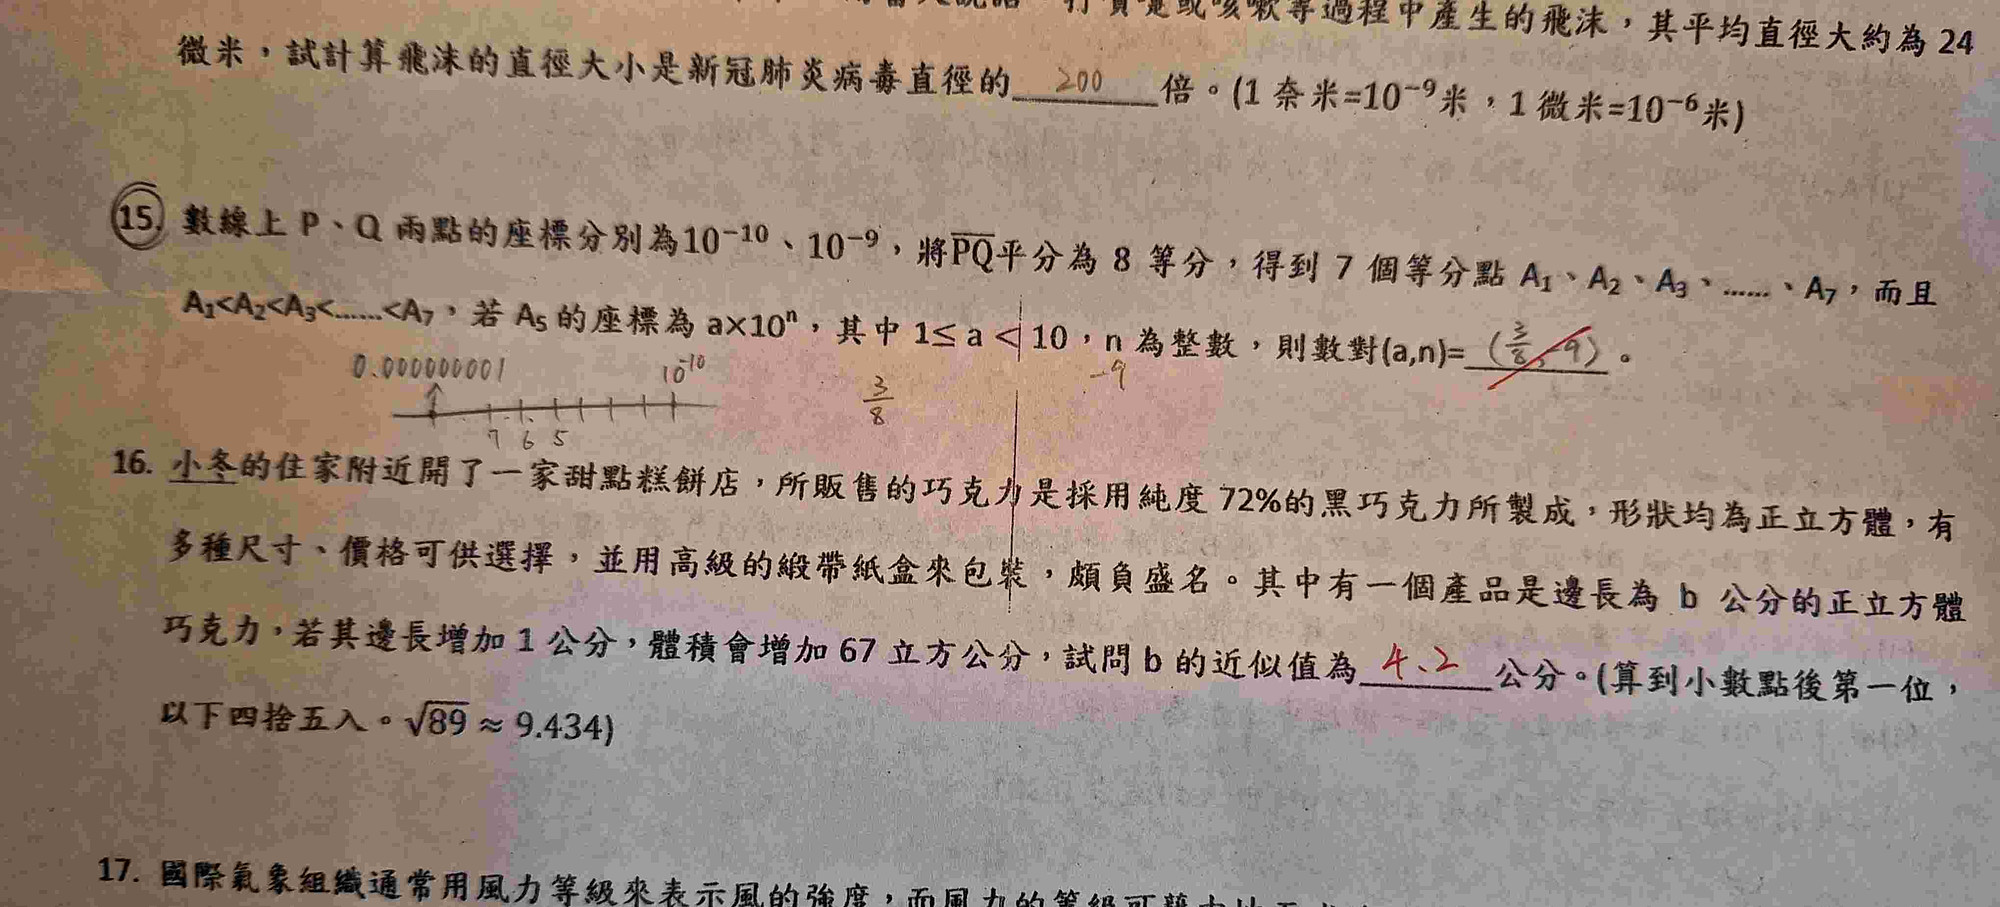 打噴嚏或咳嗽等過程中產生的飛沫，其平均直徑大約為 24
微米，試計算飛沫的直徑大小是新冠肺炎病毒直徑的 200 倍。(1 奈米=10⁻⁹米，1 微米=10⁻⁶米)
15. 數線上 P、Q 兩點的座標分別為10⁻¹⁰、10⁻⁹，將P̅Q̅平分為 8 等分，得到 7 個等分點 A₁、A₂、A₃、……、A₇，而且
A₁<A₂<A₃<……<A₇，若 A₅ 的座標為 a×10ⁿ，其中 1≤ a < 10，n 為整數，則數對(a,n)= (3/8, -9) 。
0.000000001 10⁻¹⁰ 3/8 -9
7 6 5
16. 小冬的住家附近開了一家甜點糕餅店，所販售的巧克力是採用純度 72%的黑巧克力所製成，形狀均為正立方體，有
多種尺寸、價格可供選擇，並用高級的緞帶紙盒來包裝，頗負盛名。其中有一個產品是邊長為 b 公分的正立方體
巧克力，若其邊長增加 1 公分，體積會增加 67 立方公分，試問 b 的近似值為 4.2 公分。(算到小數點後第一位，
以下四捨五入。√89 ≈ 9.434)
17. 國際氣象組織通常用風力等級來表示風的強度，而風力的等級可藉由